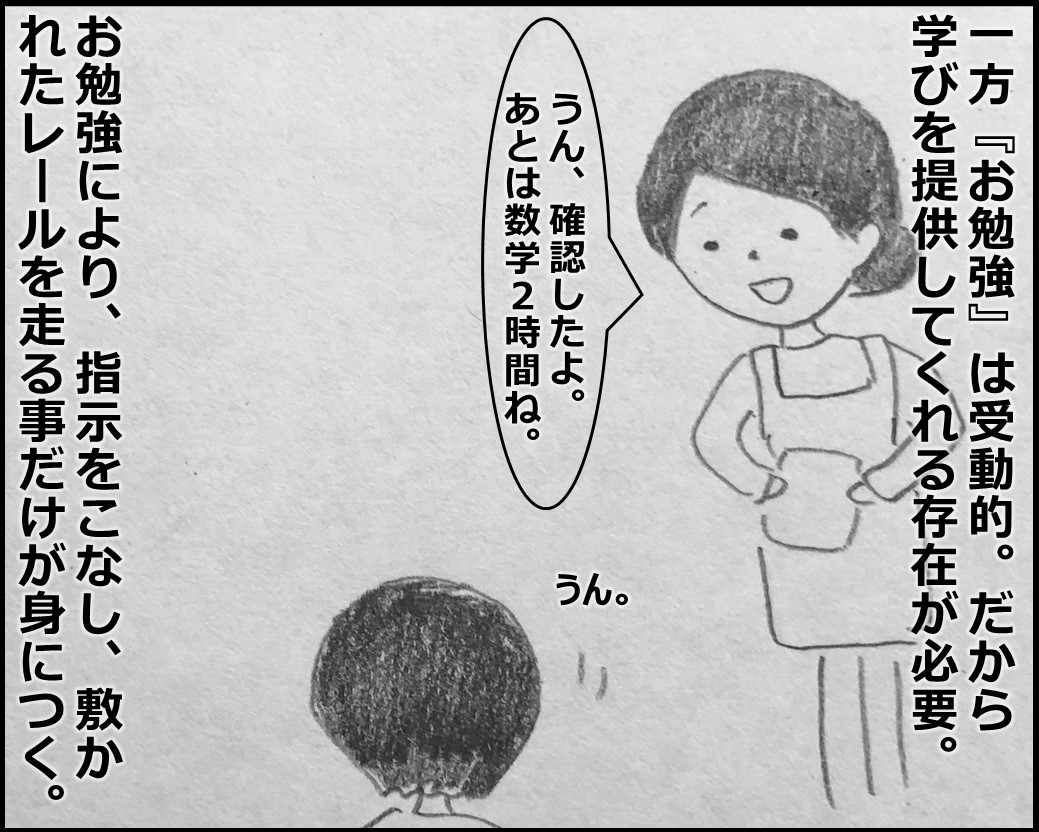 一方『お勉強』は受動的。だから
学びを提供してくれる存在が必要。
うん、確認したよ。
あとは数学２時間ね。
うん。
お勉強により、指示をこなし、敷か
れたレールを走る事だけが身につく。